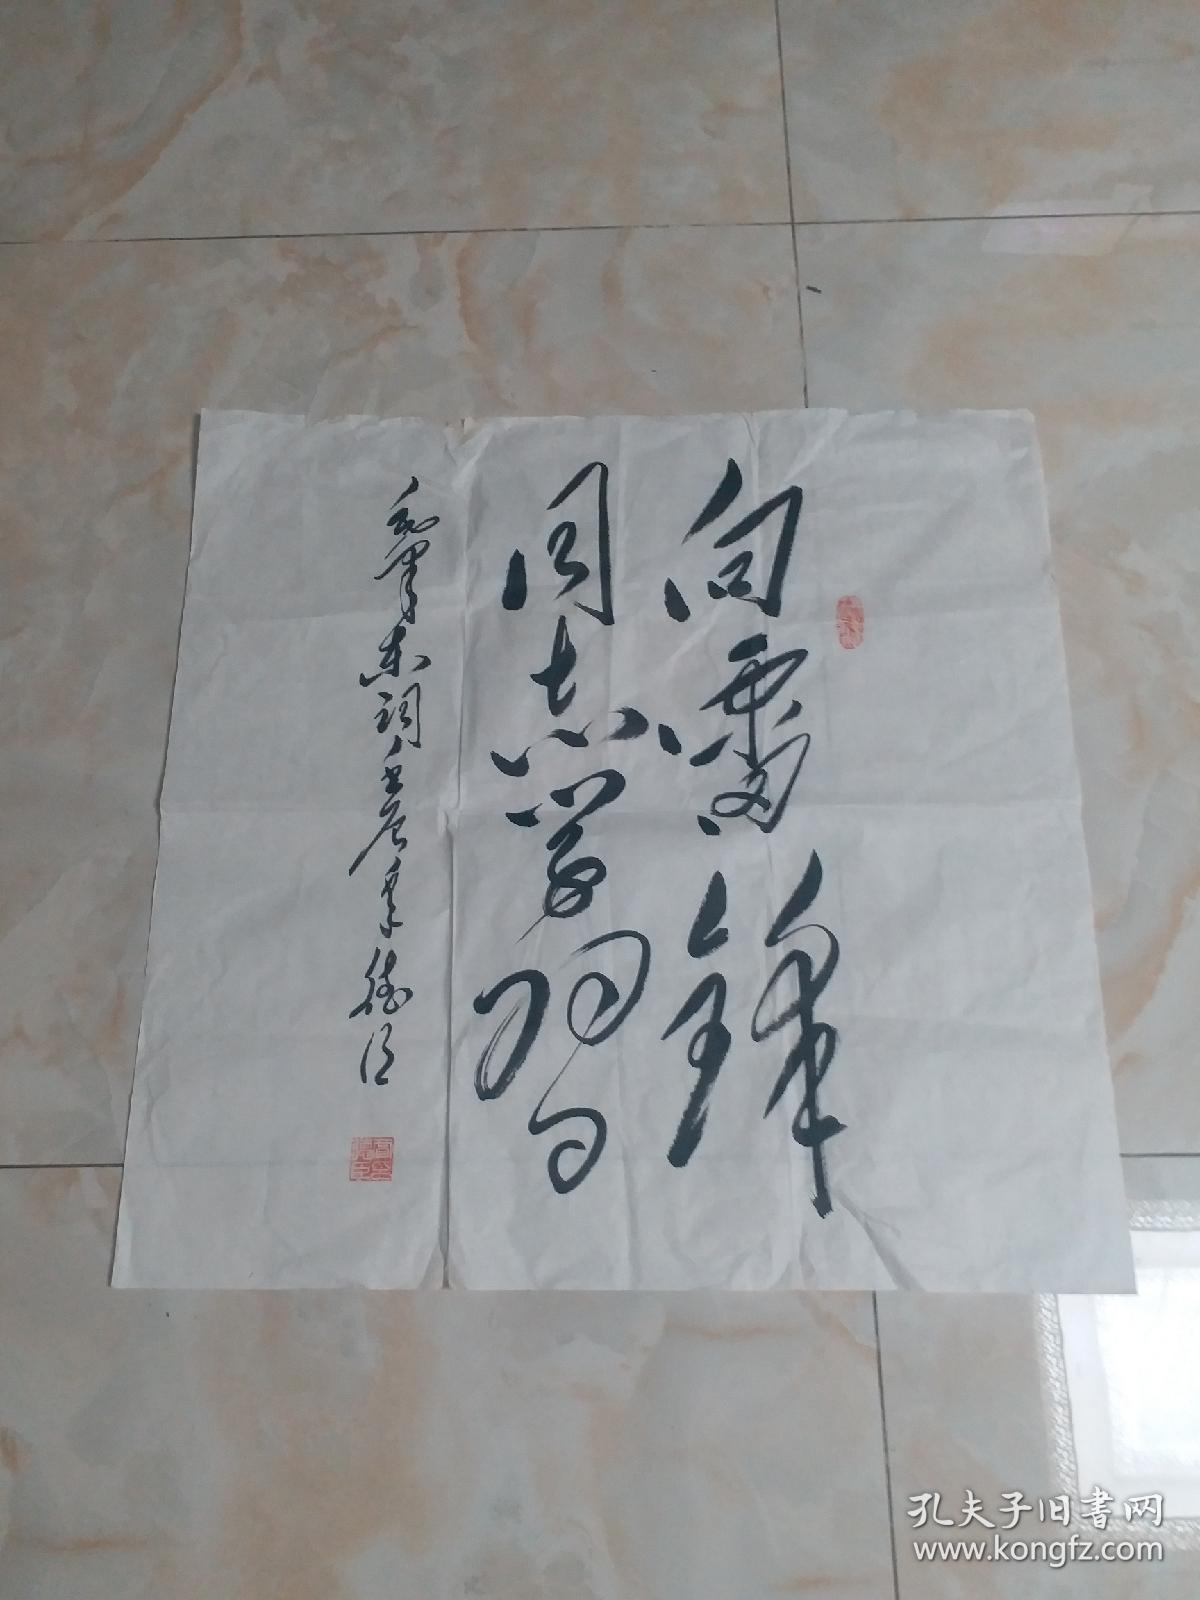 向雷锋
同志学习
毛泽东词壬辰年德臣
孔夫子旧书网
www.kongfz.com